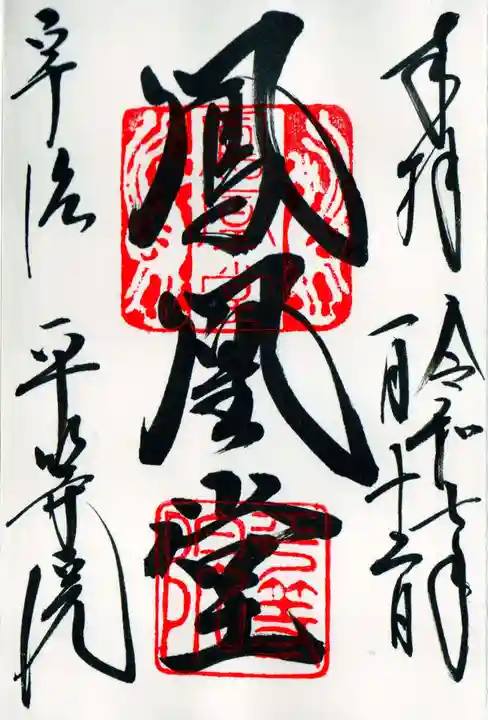 奉拝
令和七年
一月十二日
鳳凰堂
宇治
平等院